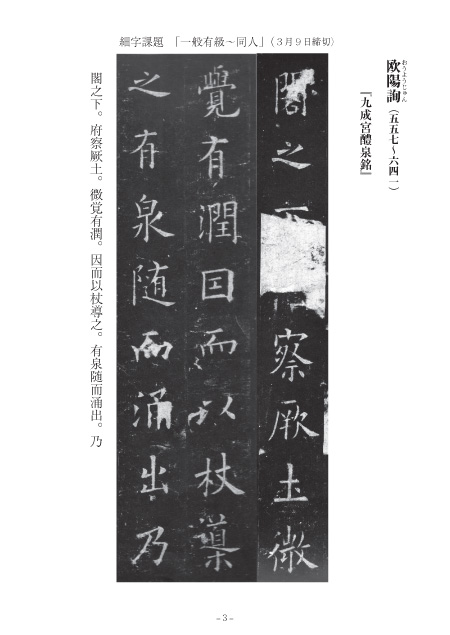 細字課題 「一般有級～同人」(3月9日締切)
欧陽詢(五五七～六四一)
おうようじゅん
『九成宮醴泉銘』
閣之下 察厥土微
覺有潤因而以杖導
之有泉随而涌出乃
閣之下。府察厥土。微覚有潤。因而以杖導之。有泉随而涌出。乃
－3－